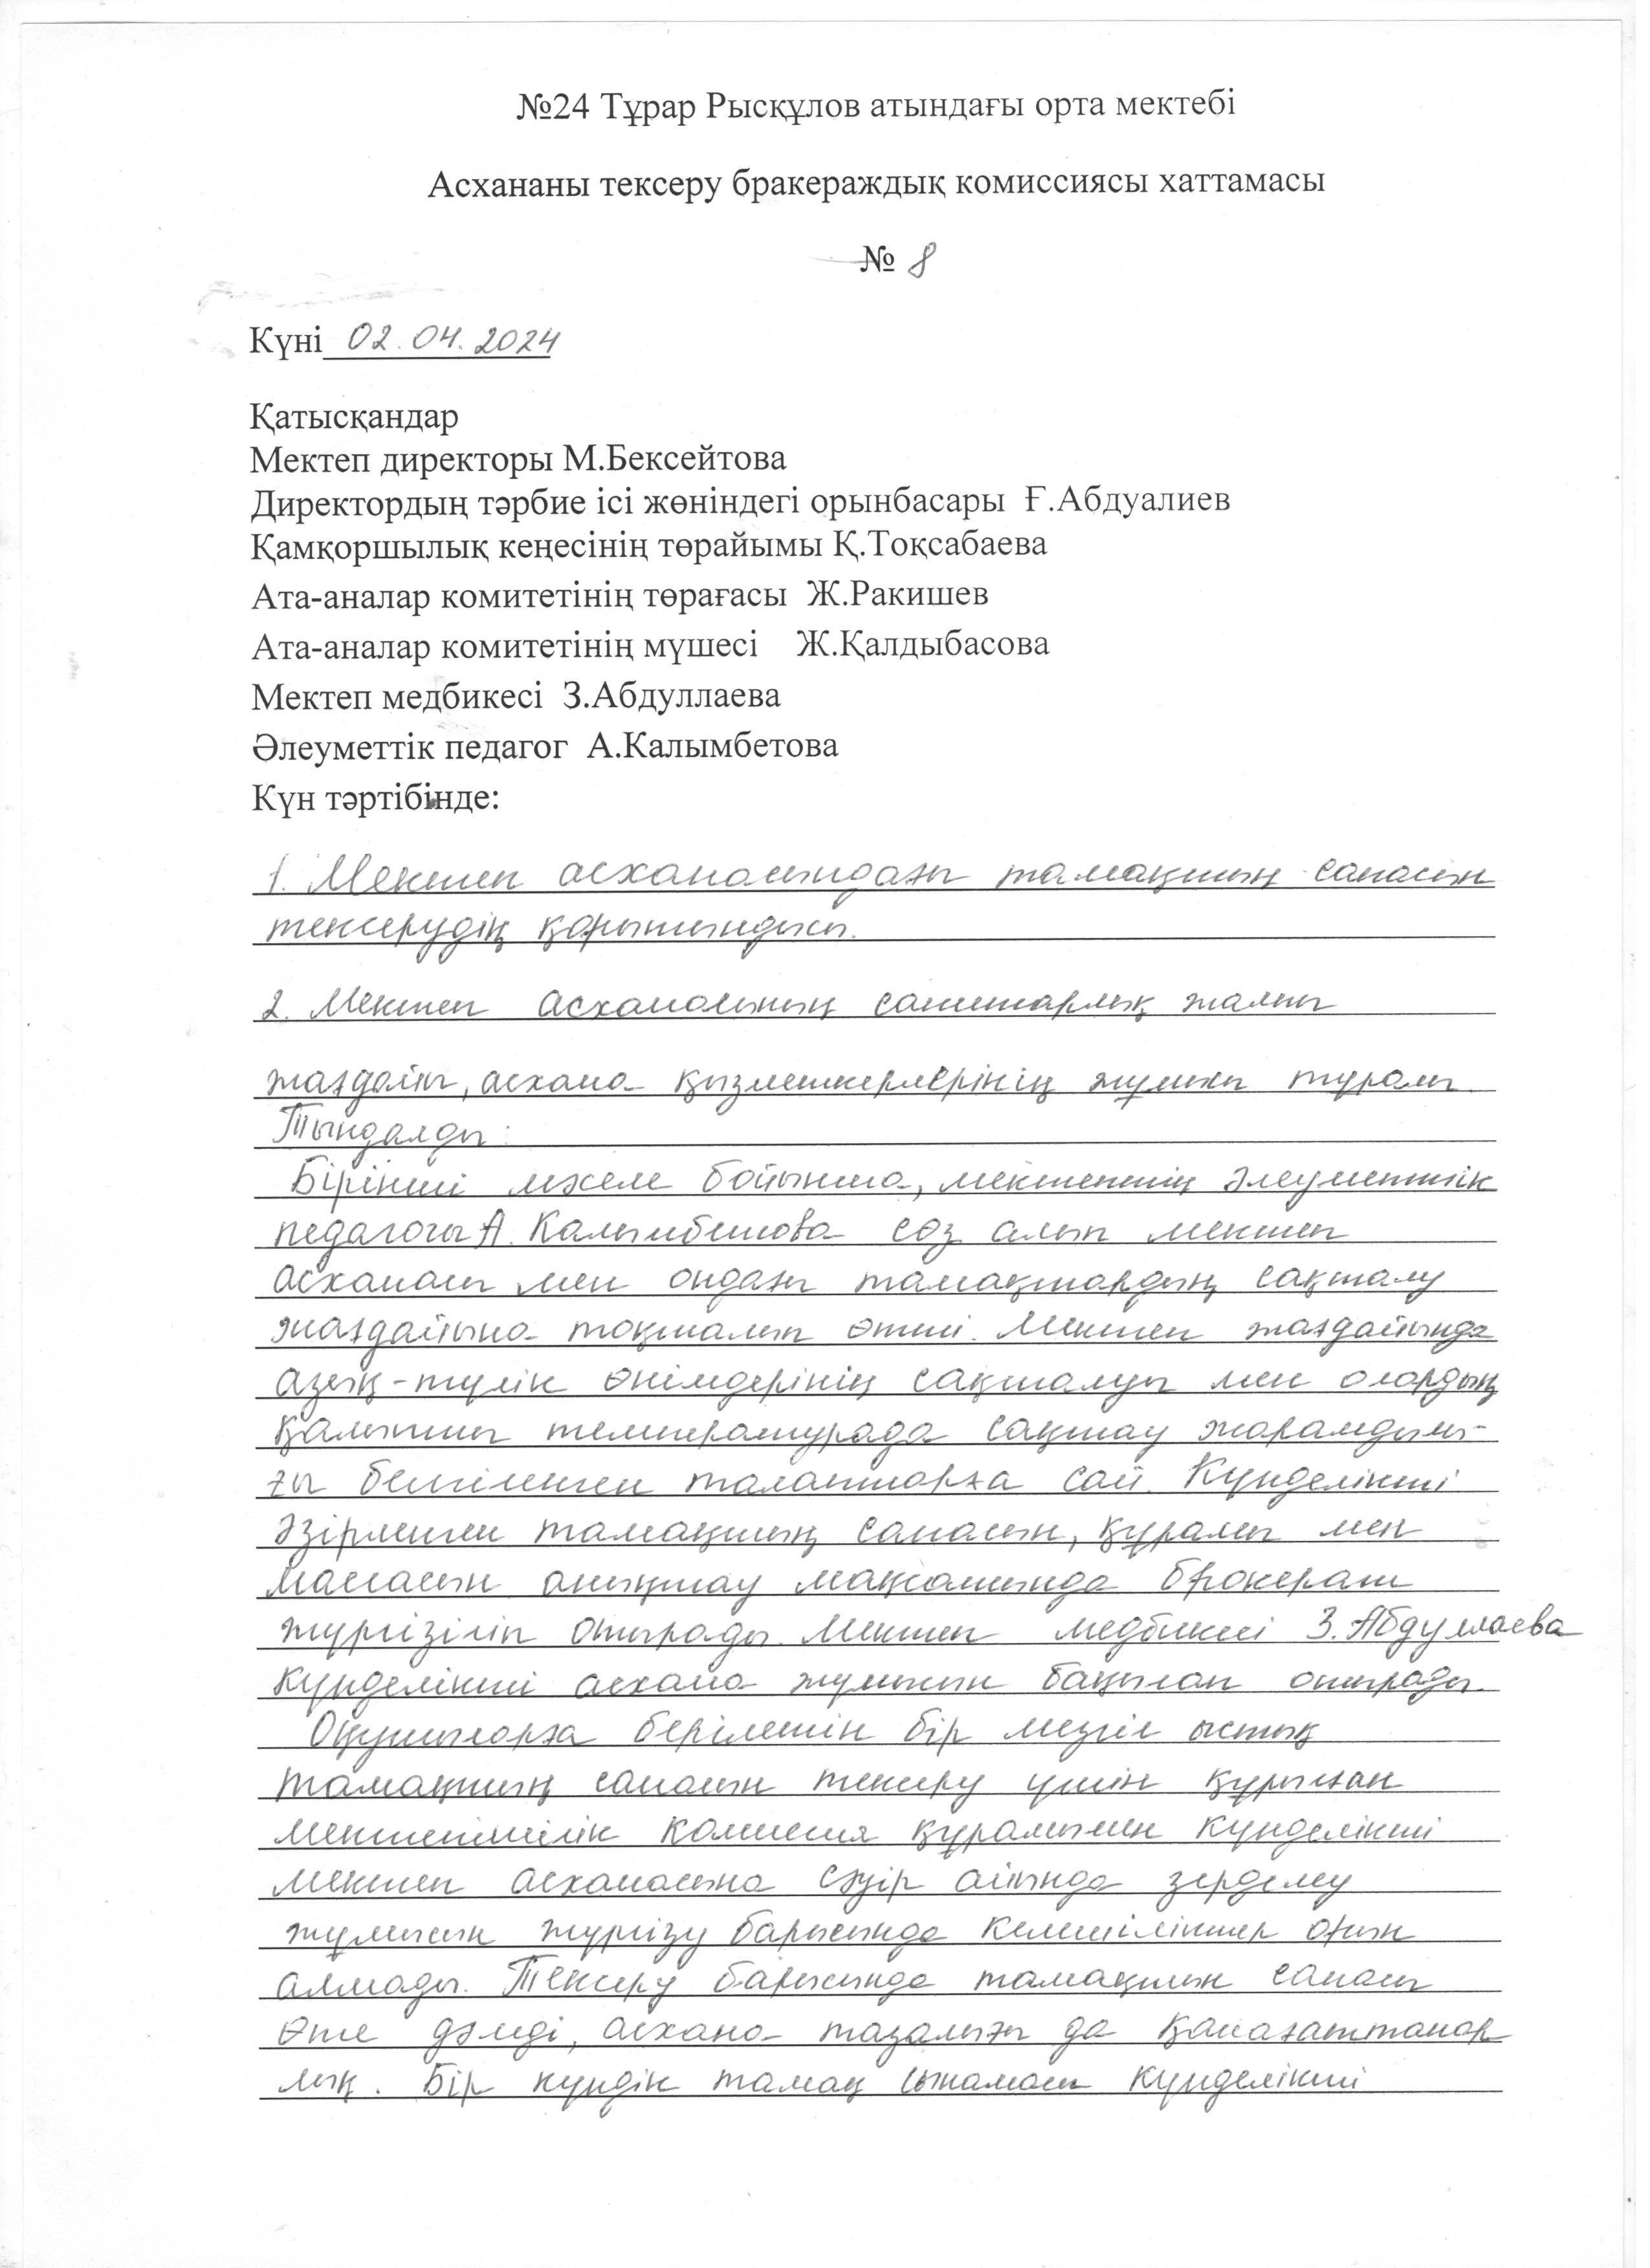 №24 Тұрар Рысқұлов атындағы орта мектебі
Асхананы тексеру бракераждық комиссиясы хаттамасы
№ 8
Күні 02.04.2024
Қатысқандар
Мектеп директоры М.Бексейтова
Директордың тәрбие ісі жөніндегі орынбасары Ғ.Абдуалиев
Қамқоршылық кеңесінің төрайымы Қ.Тоқсабаева
Ата-аналар комитетінің төрағасы Ж.Ракишев
Ата-аналар комитетінің мүшесі Ж.Қалдыбасова
Мектеп медбикесі З.Абдуллаева
Әлеуметтік педагог А.Калымбетова
Күн тәртібінде:
1. Мектеп асханасындағы тамақтың сапасын
тексерудің қорытындысы.
2. Мектеп асханасының санитарлық жалпы
жағдайы, асхана қызметкерлерінің жұмысы туралы.
Тыңдалды:
Бірінші мәселе бойынша, мектептің әлеуметтік
педагогы А. Калымбетова сөз алып мектеп
асханасы мен ондағы тамақтардың сақталу
жағдайына тоқталып өтті. Мектеп жағдайында
азық-түлік өнімдерінің сақталуы мен олардың
қалыпты температурада сақтау жарамдылы-
ғы белгіленген талаптарға сай. Күнделікті
әзірленген тамақтың сапасын, құрамы мен
массасын анықтау мақсатында брокераж
жүргізіліп отырады. Мектеп медбикесі З.Абдуллаева
күнделікті асхана жұмысын бақылап отырады.
Оқушыларға берілетін бір мезгіл ыстық
тамақтың сапасын тексеру үшін құрылған
мектепішілік комиссия құрамымен күнделікті
мектеп асханасына сәуір айында зерделеу
жұмысын жүргізу барысында кемшіліктер орын
алмады. Тексеру барысында тамақтың сапасы
өте дәмді, асхана тазалығы да қанағаттанар
лық. Бір күндік тамақ сынамасы күнделікті